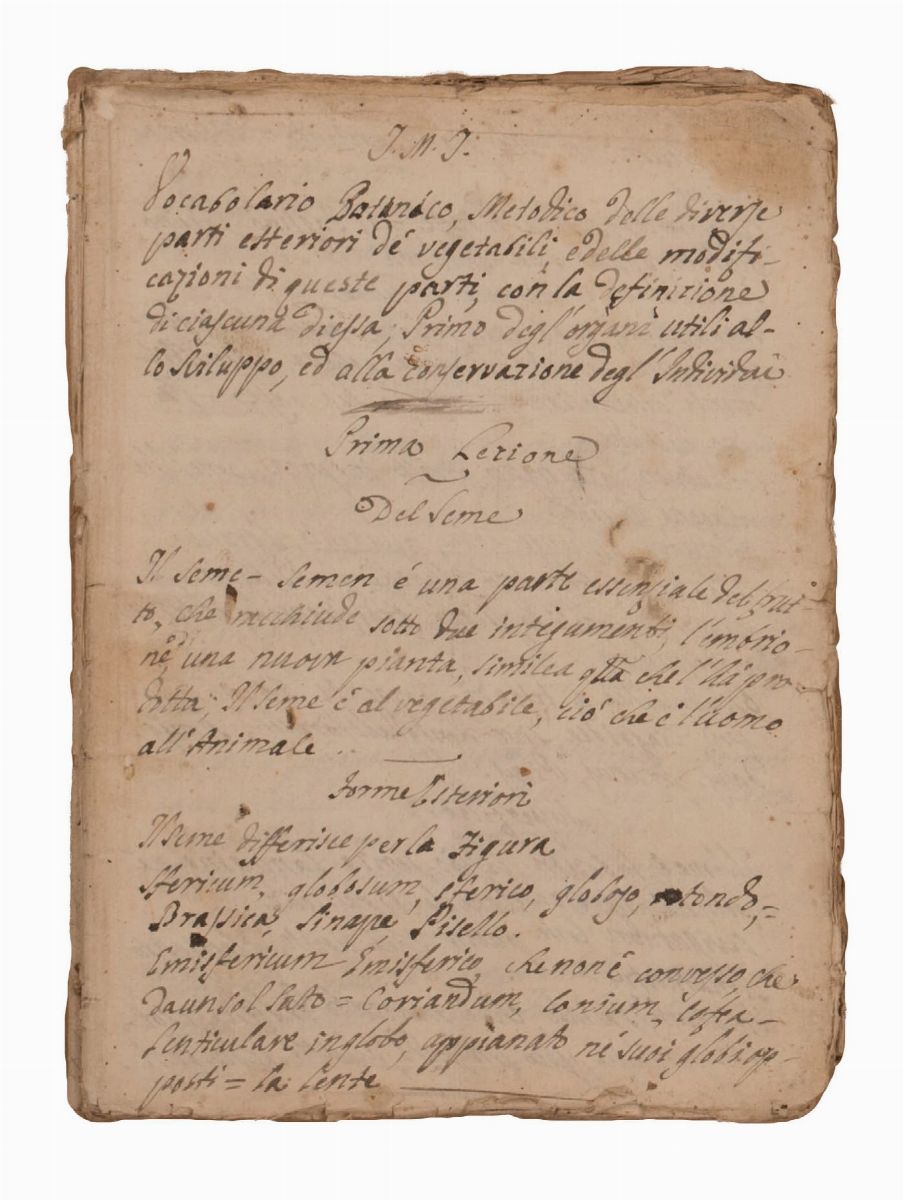 J. M. J.
Vocabolario Botanico, Metodico delle diverse
parti esteriori de' vegetabili, e delle modifi-
cazioni di queste parti, con la definizione
di ciascuna di essa; Primo degl'organi utili al-
lo sviluppo, ed alla conservazione degl'Individui
Prima Lezione
Del Seme
Il seme - semen é una parte essenziale del frut-
to, che racchiude sotto due integumenti, l'embrio-
ne di una nuova pianta, simile a qlla che l'há pro-
dotta; Il seme é al vegetabile, ció che é l'uomo
all'Animale..
Forme Esteriori
Il seme differisce per la Figura
Sfericum, globosum, sferico, globoso, rotondo,=
Brassica, Sinape, Pisello.
Emisfericum Emisferico, che non é convesso, che
da un sol lato = Coriandum, Conium, Cofea-
Lenticulare in globo, appianato né suoi globi op-
posti = la lente